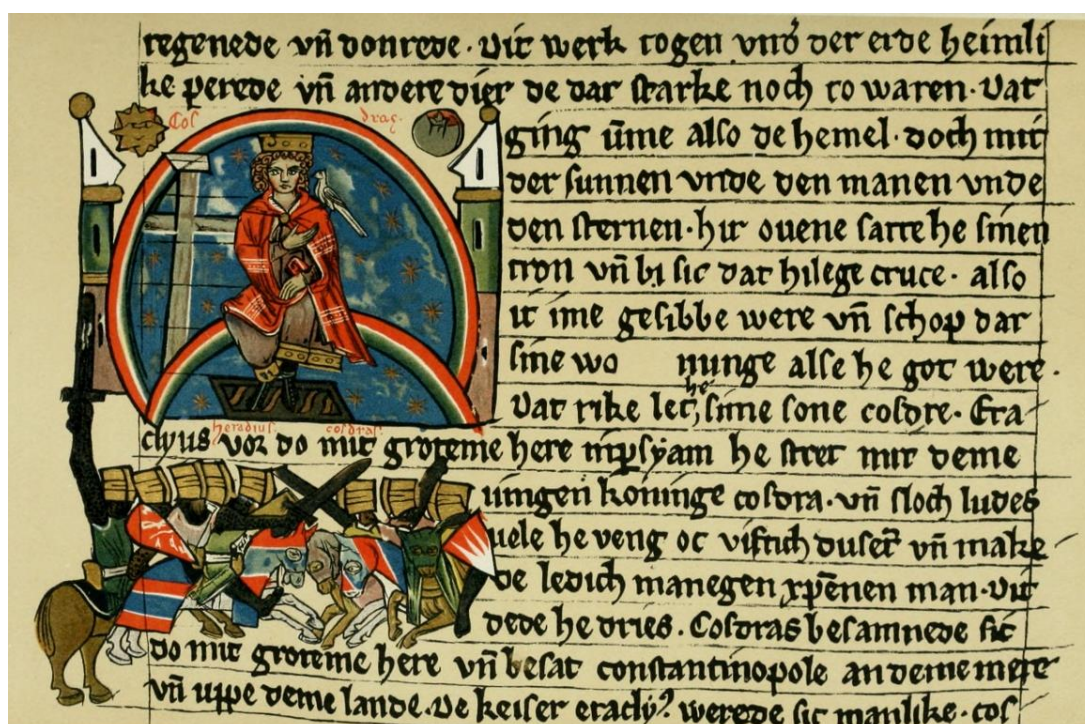 regenede vn̄ donrede. Dit werk togen vnd' der erde heimli
ke perede vn̄ andere dier de dar starke noch to waren. Dat
Cosdras
ging ūme also de hemel. doch mit
der sunnen vnde den manen vnde
den sternen. hir ouene satte he sinen
tron vn̄ bi sic dat hilege cruce. also
it ime gesibbe were vn̄ schop dar
sine wonunge alse he got were.
Dat rike let he sime sone cosdre. Era
heraclius cosdras
clyus vor do mit groteme here inpsyam he stret mit deme
iungen koninge cosdra. vn̄ sloch ludes
uele he veng oc viftich dusēt vn̄ make
de ledich manegen xpēnen man. Dit
dede he dries. Cosdras besamnede sic
do mit groteme here vn̄ besat constantinopole an deme mere
vn̄ uppe deme lande. De keiser eracly' werede sic manlike. cos